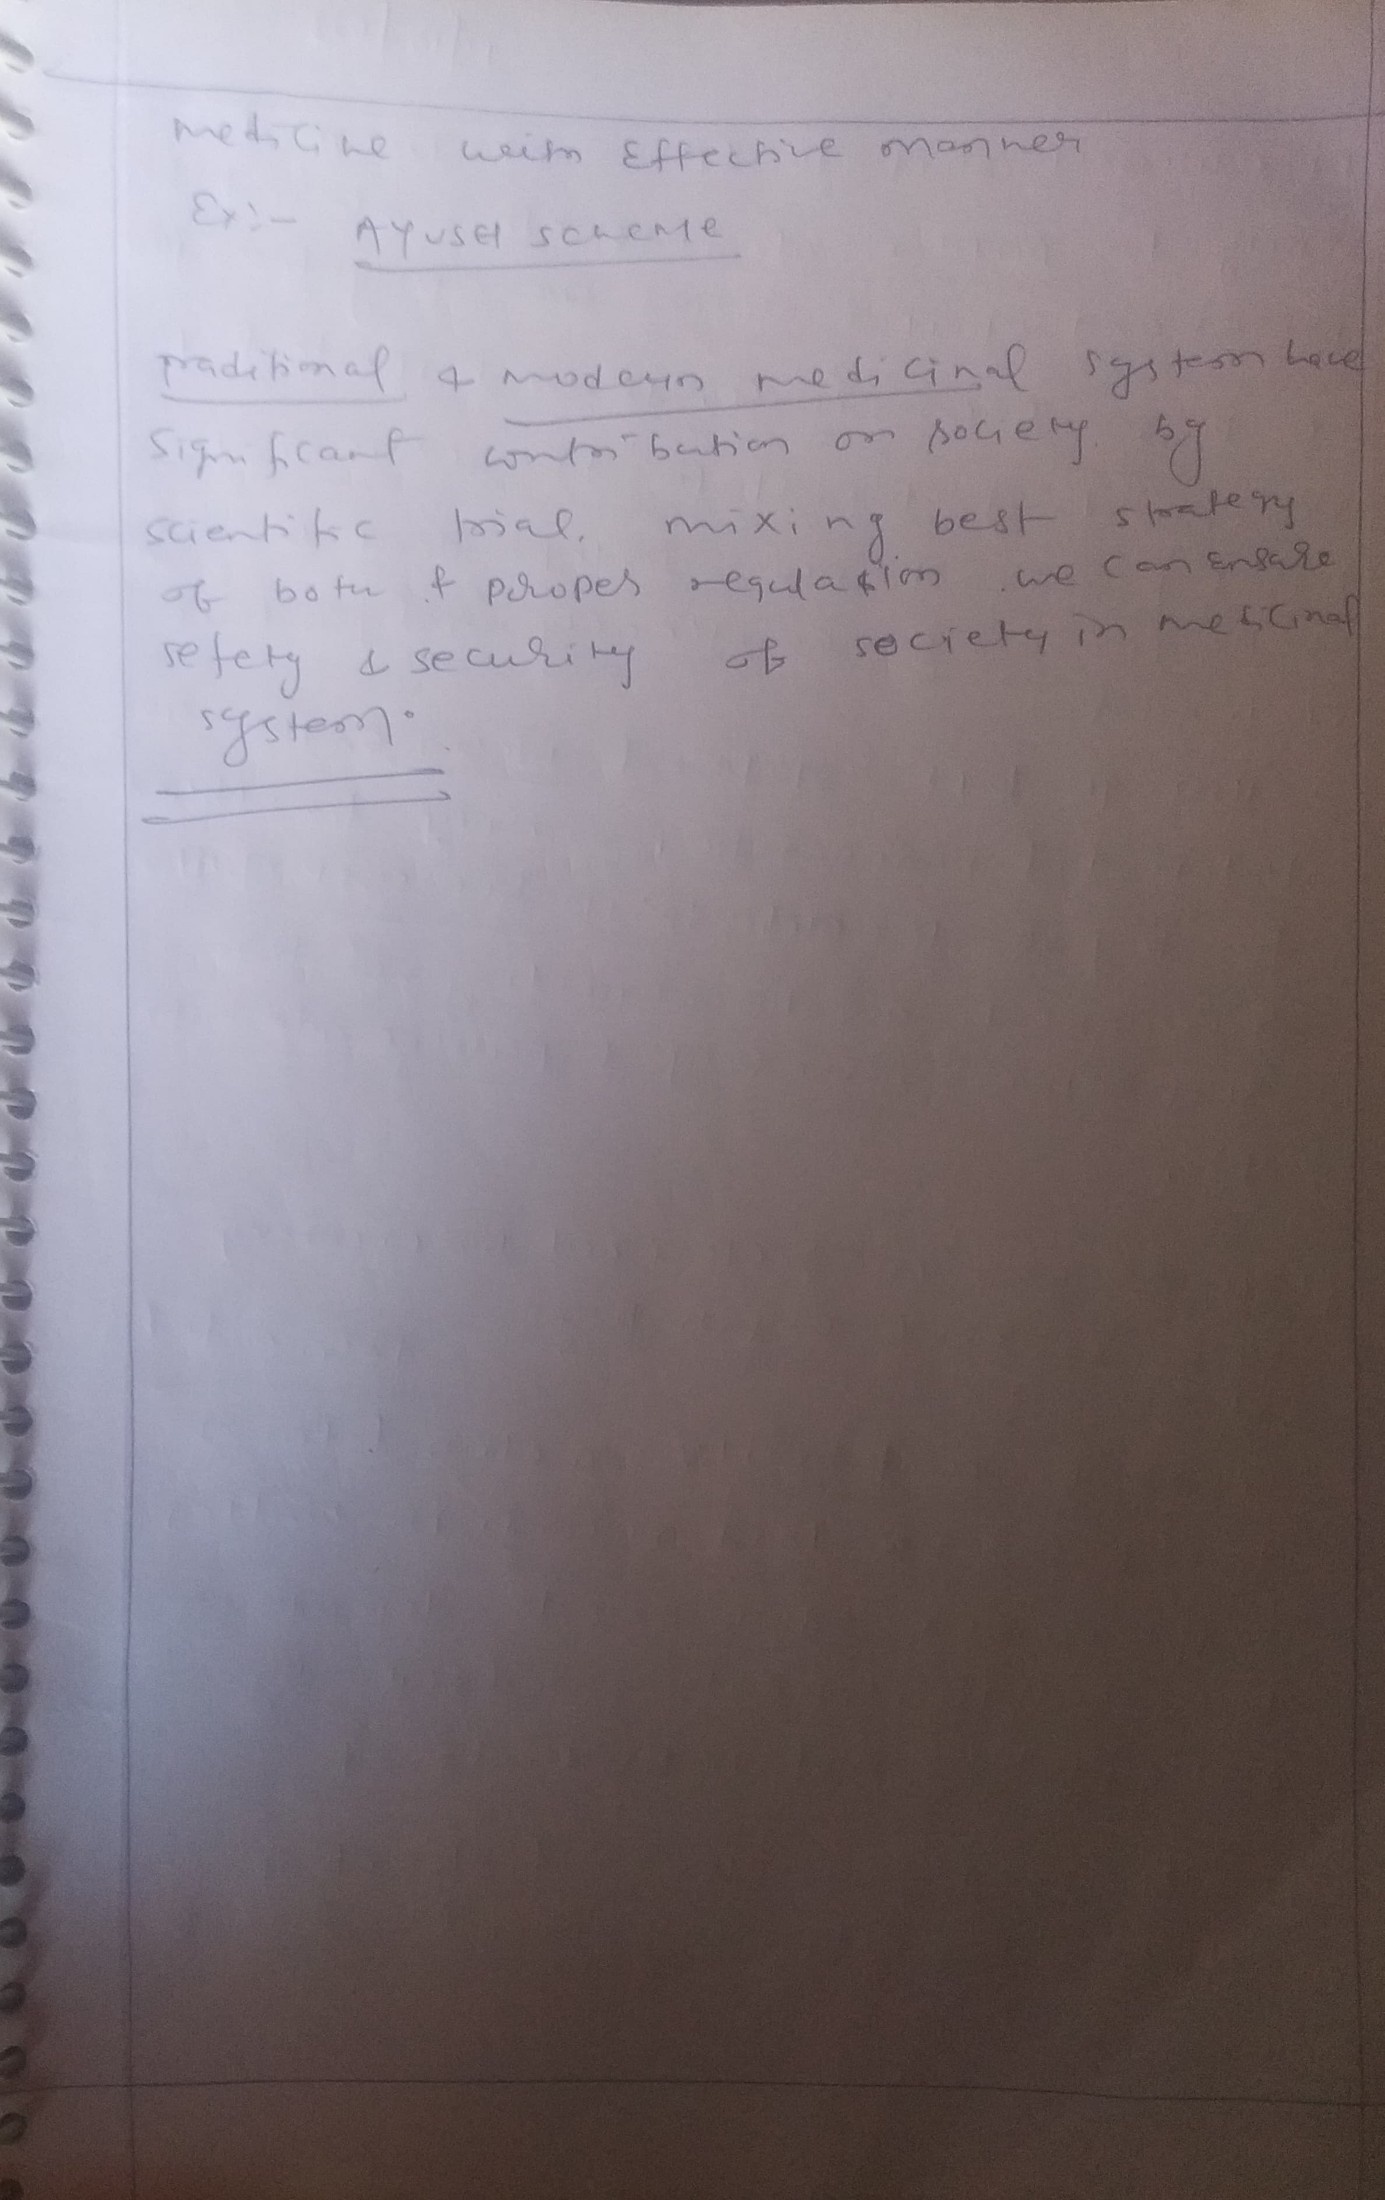 medicine with Effective manner
Ex:- AYUSH SCHEME
Traditional & modern medicinal system have
significant contribution on society. by
scientific trial, mixing best strategy
of both & proper regulation we can ensure
sefety & security of society in medicinal
system.